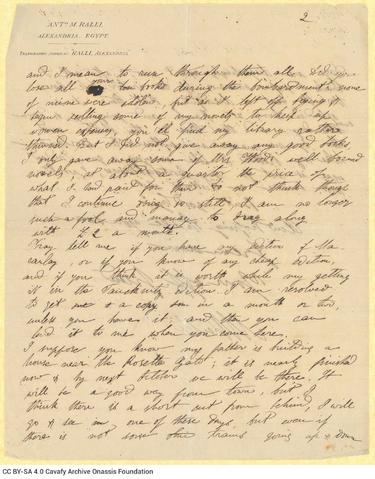 2
ANTº M. RALLI,
ALEXANDRIA, EGYPT.
TELEGRAPHIC ADDRESS: RALLI, ALEXANDRIA.
and I mean to run through them all. Did you
lose all your books during the bombardment? none
of mine were stolen, but as I left off
selling some of my novels to keep up
women expenses, you'll find my library rather
thinned. But I did not give away any good books
I only gave away some of Mrs Wood's well bound
novels at about a quarter the price of
what I had paid for them. Do not think though
that I continue doing so still. I am no longer
such a fool and manage to drag along
with £2 a month.
Pray tell me if you have any edition of Ma-
caulay, or if you know of any cheap edition,
and if you think it is worth while my getting
it in the Tauchnitz edition. I am resolved
to get me a copy in a month or two,
unless you have it, and then you can
lend it to me when you come here.
I suppose you know my father is building a
house near the Rosetta Gate; it is nearly finished
now & by next October we will be there. It
will be a good way from town, but I
think there is a short cut from behind, I will
go & see in one of these days, but even if
there is not some other trams going up & down
CC BY-SA 4.0 Cavafy Archive Onassis Foundation